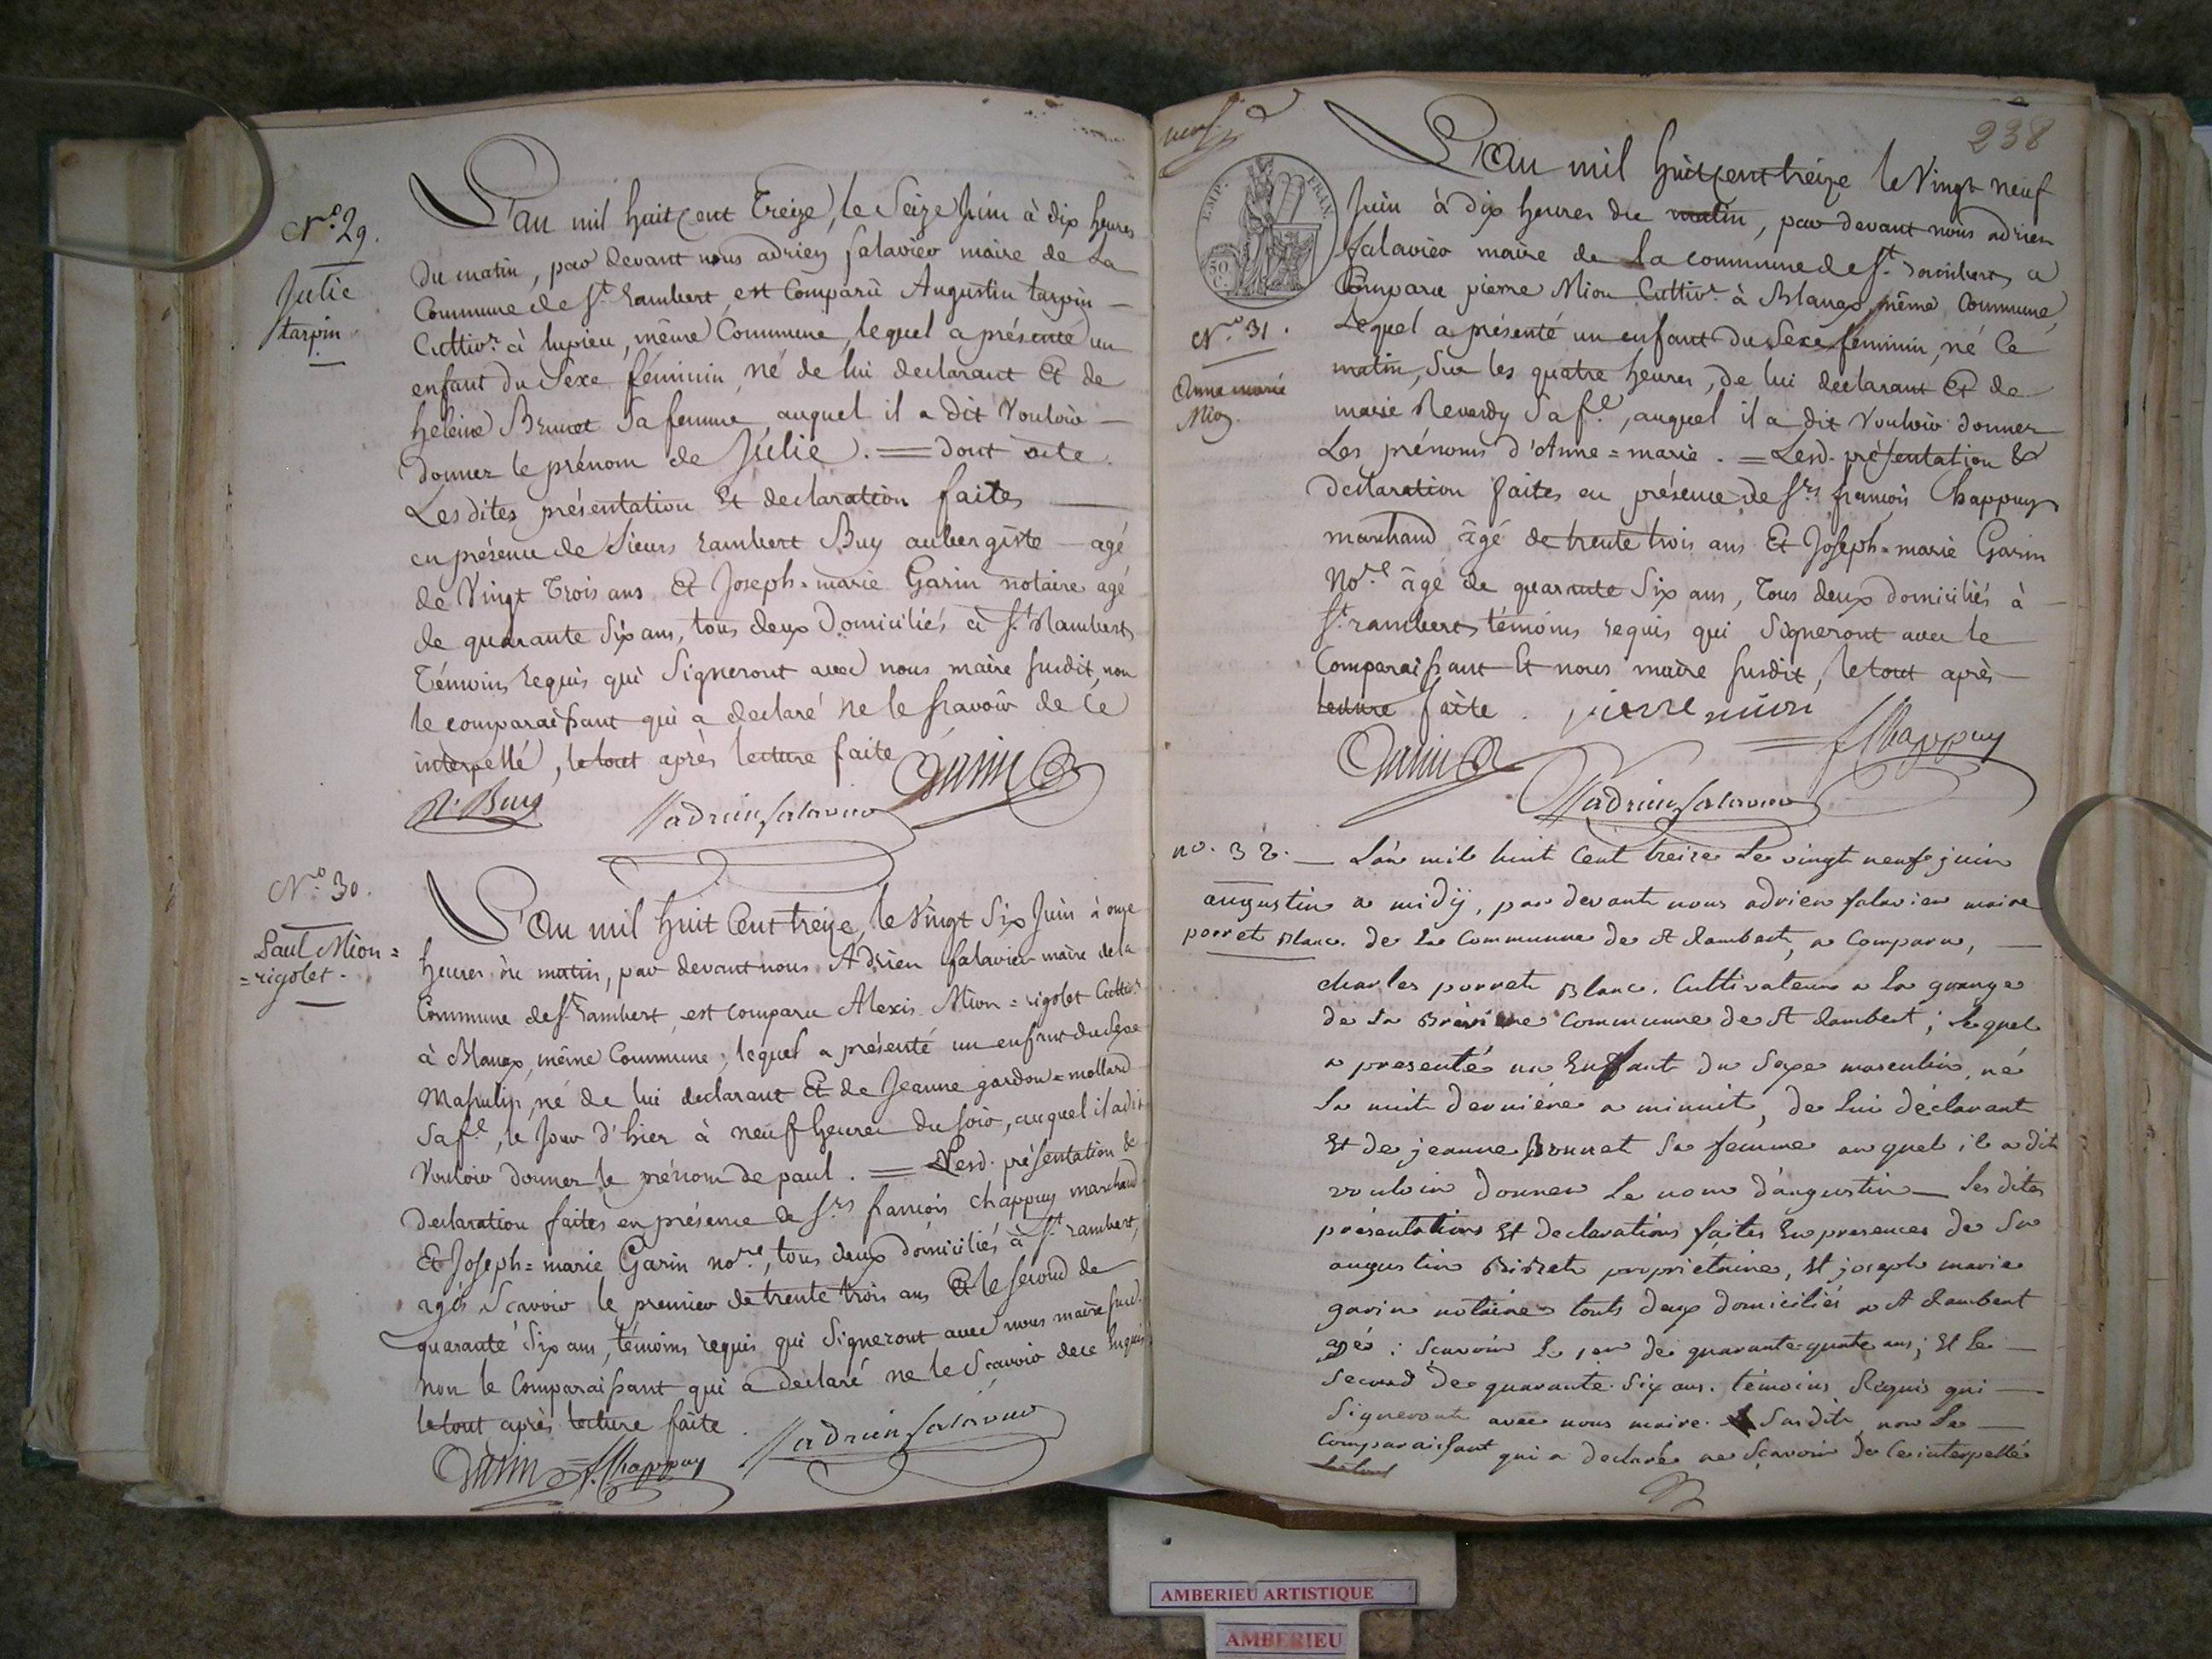 N.º 29.
Julie
tarpin
L'an mil huit cent Treize, le Seize Juin à dix heures
du matin, par devant nous adrien Salavier maire de La
Commune de St. rambert, est Comparù Augustin tarpin
Cultivr. à lupieu, même Commune, lequel a présenté un
enfant du Sexe féminin, né de lui declarant Et de
heleine Brunet Sa femme, auquel il a dit Vouloir
donner le prénom de Julie. = dont acte.
Lesdites présentation Et declaration faites
en présence de Sieurs rambert Buy aubergiste agé
de Vingt Trois ans Et Joseph=marie Garin notaire agé
de quarante Six ans, tous deux Domiciliés à St. Rambert
Témoins requis qui Signeront avec nous maire susdit, non
le comparaissant qui a declaré ne le sçavoir de ce
interpellé, le tout après lecture faite
Garin
R. Buy
adrien Salavier
N.º 30.
Paul Mion=
=rigolet.
L'an mil huit Cent treize, le Vingt Six Juin à onze
heures du matin, par devant nous Adrien Salavier maire de la
Commune de St. rambert, est comparu Alexis Mion=rigolet Cultivr.
à Blanaz, même Commune; lequel a présenté un enfant du Sexe
Masculin, né de lui declarant Et de Jeanne gardon=mollard
Sa fe., le Jour d'hier à neuf heures du soir, auquel il a dit
Vouloir donner le prénom de paul. = Lesd. présentation &
declaration faites en présence de Srs. françois chappuy marchand
Et Joseph=marie Garin nore., tous deux domiciliés à St. rambert,
agés, Scavoir le premier de trente trois ans Et le second de
quarante Six ans, témoins requis qui Signeront avec nous maire susd.
non le Comparaissant qui a declaré ne le Scavoir de ce Enquis
le tout après lecture faite.
Garin f. Chappuy adrien Salavier
neuf
238
EMP. FRAN.
50
C.
N.º 31.
Anne marie
Mion
L'an mil huit cent treize le Vingt neuf
Juin à dix heures du matin, par devant nous adrien
Salavier maire de la commune de St. rambert, a
Comparu pierre Mion Cultivr. à Blanaz, même Commune,
Lequel a présenté un enfant du Sexe féminin, né Ce
matin, Sur les quatre heures, de lui declarant Et de
marie Reverdy Sa fe., auquel il a dit Vouloir donner
Les prénoms d'Anne=marie. = Lesd. présentation &
declaration faites en présence de Srs. françois Chappuy
marchand âgé de trente trois ans Et Joseph=marie Garin
Nore. âgé de quarante Six ans, Tous deux domiciliés à
St. rambert témoins requis qui Signeront avec le
Comparaissant Et nous maire susdit, le tout après
lecture faite. pierre mion
f. Chappuy
Garin
adrien Salavier
no. 32.
augustin
porret Blanc.
L'an mil huit Cent treize Le vingt neuf juin
a midij, par devant nous adrien salavier maire
de La Commune de St Rambert, a Comparu,
charles porret Blanc. Cultivateur a La grange
de La commune de St Rambert; Lequel
a presenté un Enffant du Sexe masculin, né
La nuit dernière a minuit, de Lui déclarant
Et de jeanne Bonnet Sa femme auquel il a dit
vouloir donner Le nom d'augustin Les dites
présentations Et declarations faites En presences de Sr
augustin proprietaire, Et joseph marie
garin notaire touts deux domiciliés a St Rambert
agés: Scavoir Le 1er de quarante-quatre ans; Et Le
Second de quarante-Six ans. témoins Requis qui
Signeront avec nous maire Susdit, non Le
Comparaissant qui a declaré ne Scavoir de Ce interpellé
Le tout
AMBERIEU ARTISTIQUE
AMBERIEU